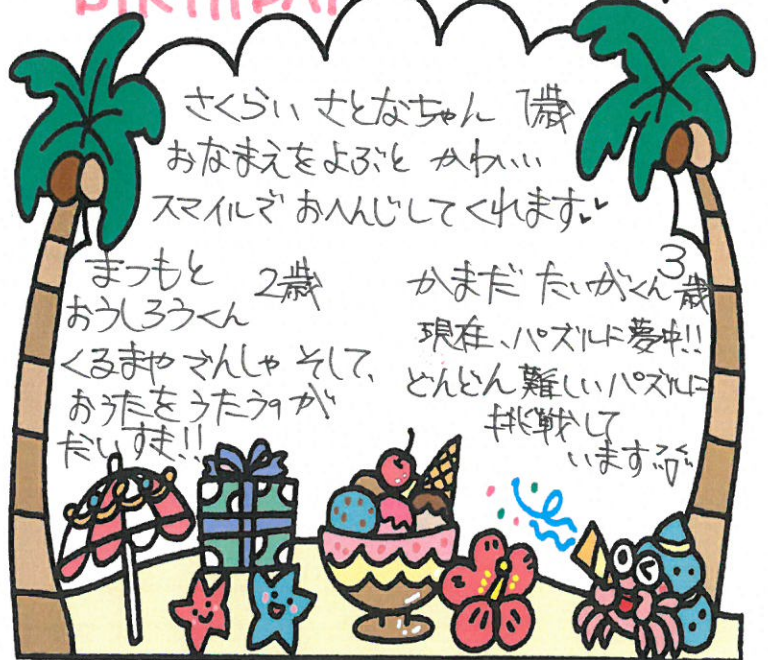 BIRTHDAY
さくらい さとなちゃん 1歳
おなまえをよぶと かわいい
スマイルで おへんじしてくれます
まつもと 2歳
おうしろうくん
くるまや でんしゃ そして、
おうたをうたうのが
だいすき!!
かまだ たいがくん 3歳
現在、パズルに夢中!!
どんどん難しいパズルに
挑戦して
います